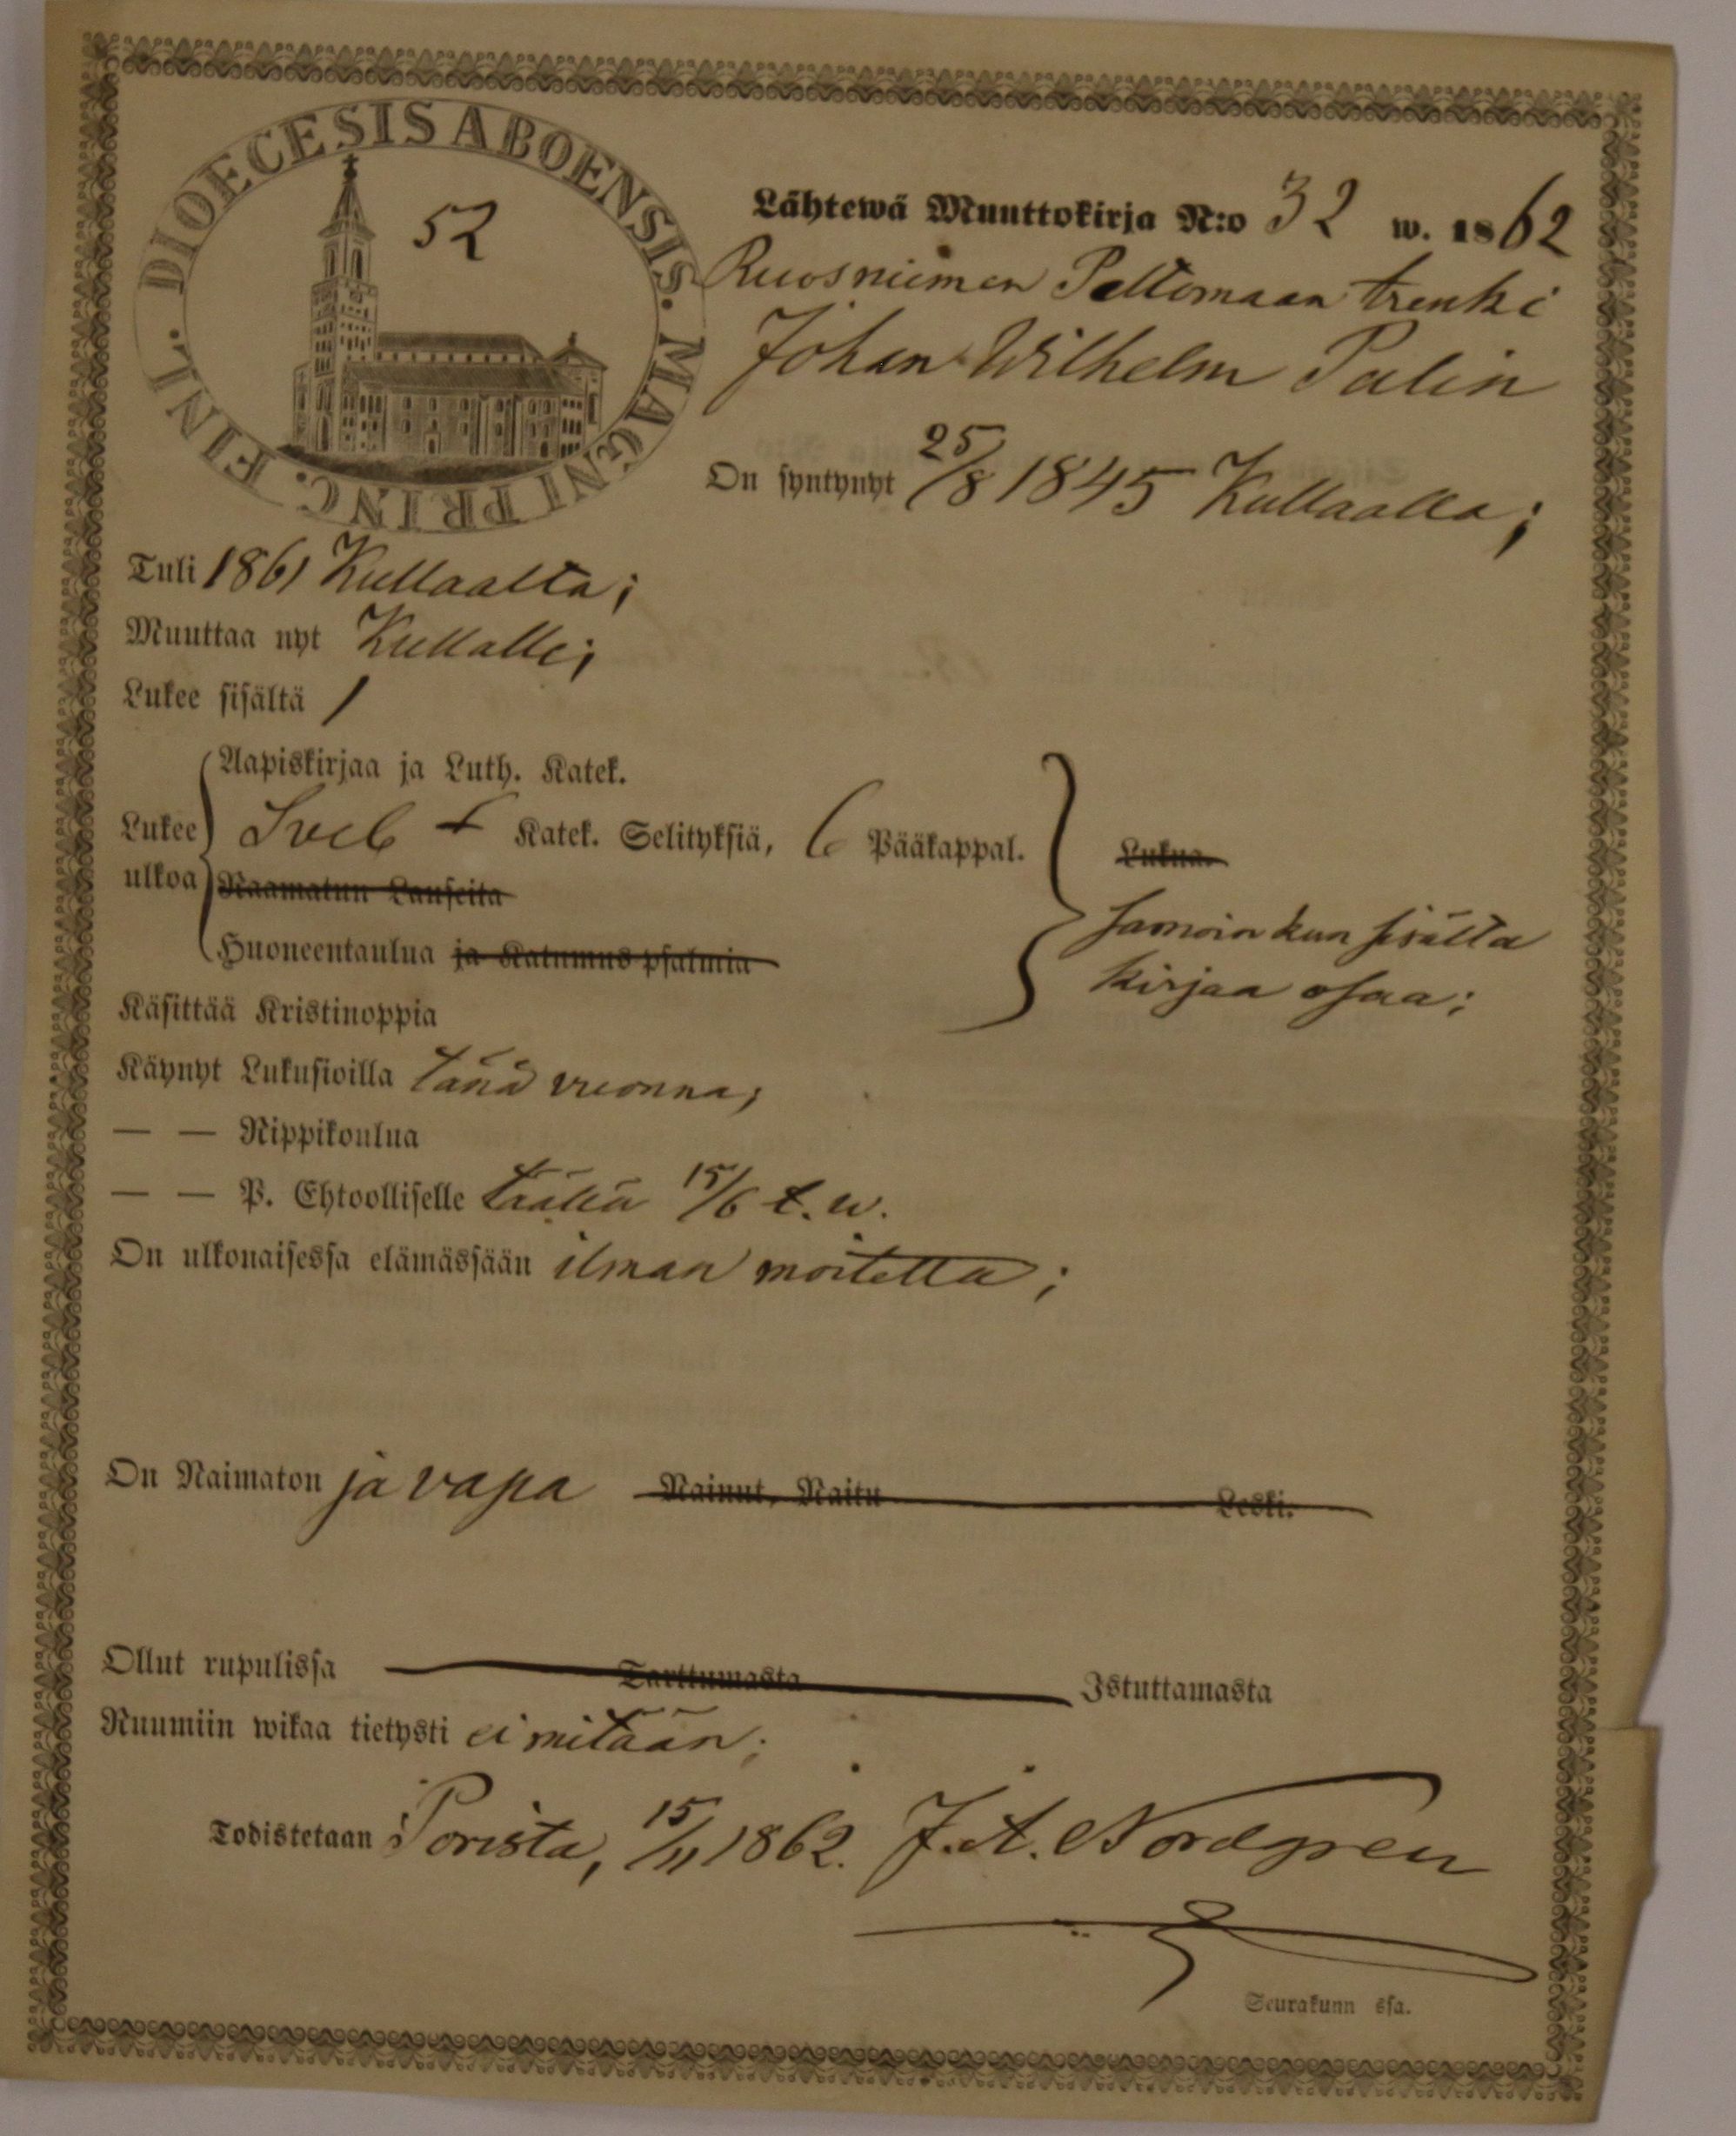 DIOECESIS ABOENSIS. MAGNI PRINC. FINL.
52
Lähtewä Muuttokirja N:o 32 w. 1862
Ruosniemen Peltomaan trenki
Johan Wilhelm Palin
On syntynyt 25/8 1845 Kullaalla;
Tuli 1861 Kullaalta;
Muuttaa nyt Kullalle;
Lukee sisältä /
Aapiskirjaa ja Luth. Katek.
Lukee ulkoa
Sveb + Katek. Selityksiä, 6 Pääkappal.
Lukua.
Raamatun Lauseita
Huoneentaulua ja Katumus psalmia
samoin kun sisältä
kirjaa osaa;
Käsittää Kristinoppia
Käynyt Lukusioilla tänä vuonna;
— — Rippikoulua
— — P. Ehtoolliselle täällä 15/6 t. w.
On ulkonaisessa elämässään ilman moitetta;
On Naimaton ja vapa Nainut, Naitu Leski.
Ollut rupulissa Tarttumasta Istuttamasta
Ruumiin wikaa tietysti ei mitään;
Todistetaan Porista, 15/11 1862. J. A. Nordgren
Seurakunn ssa.